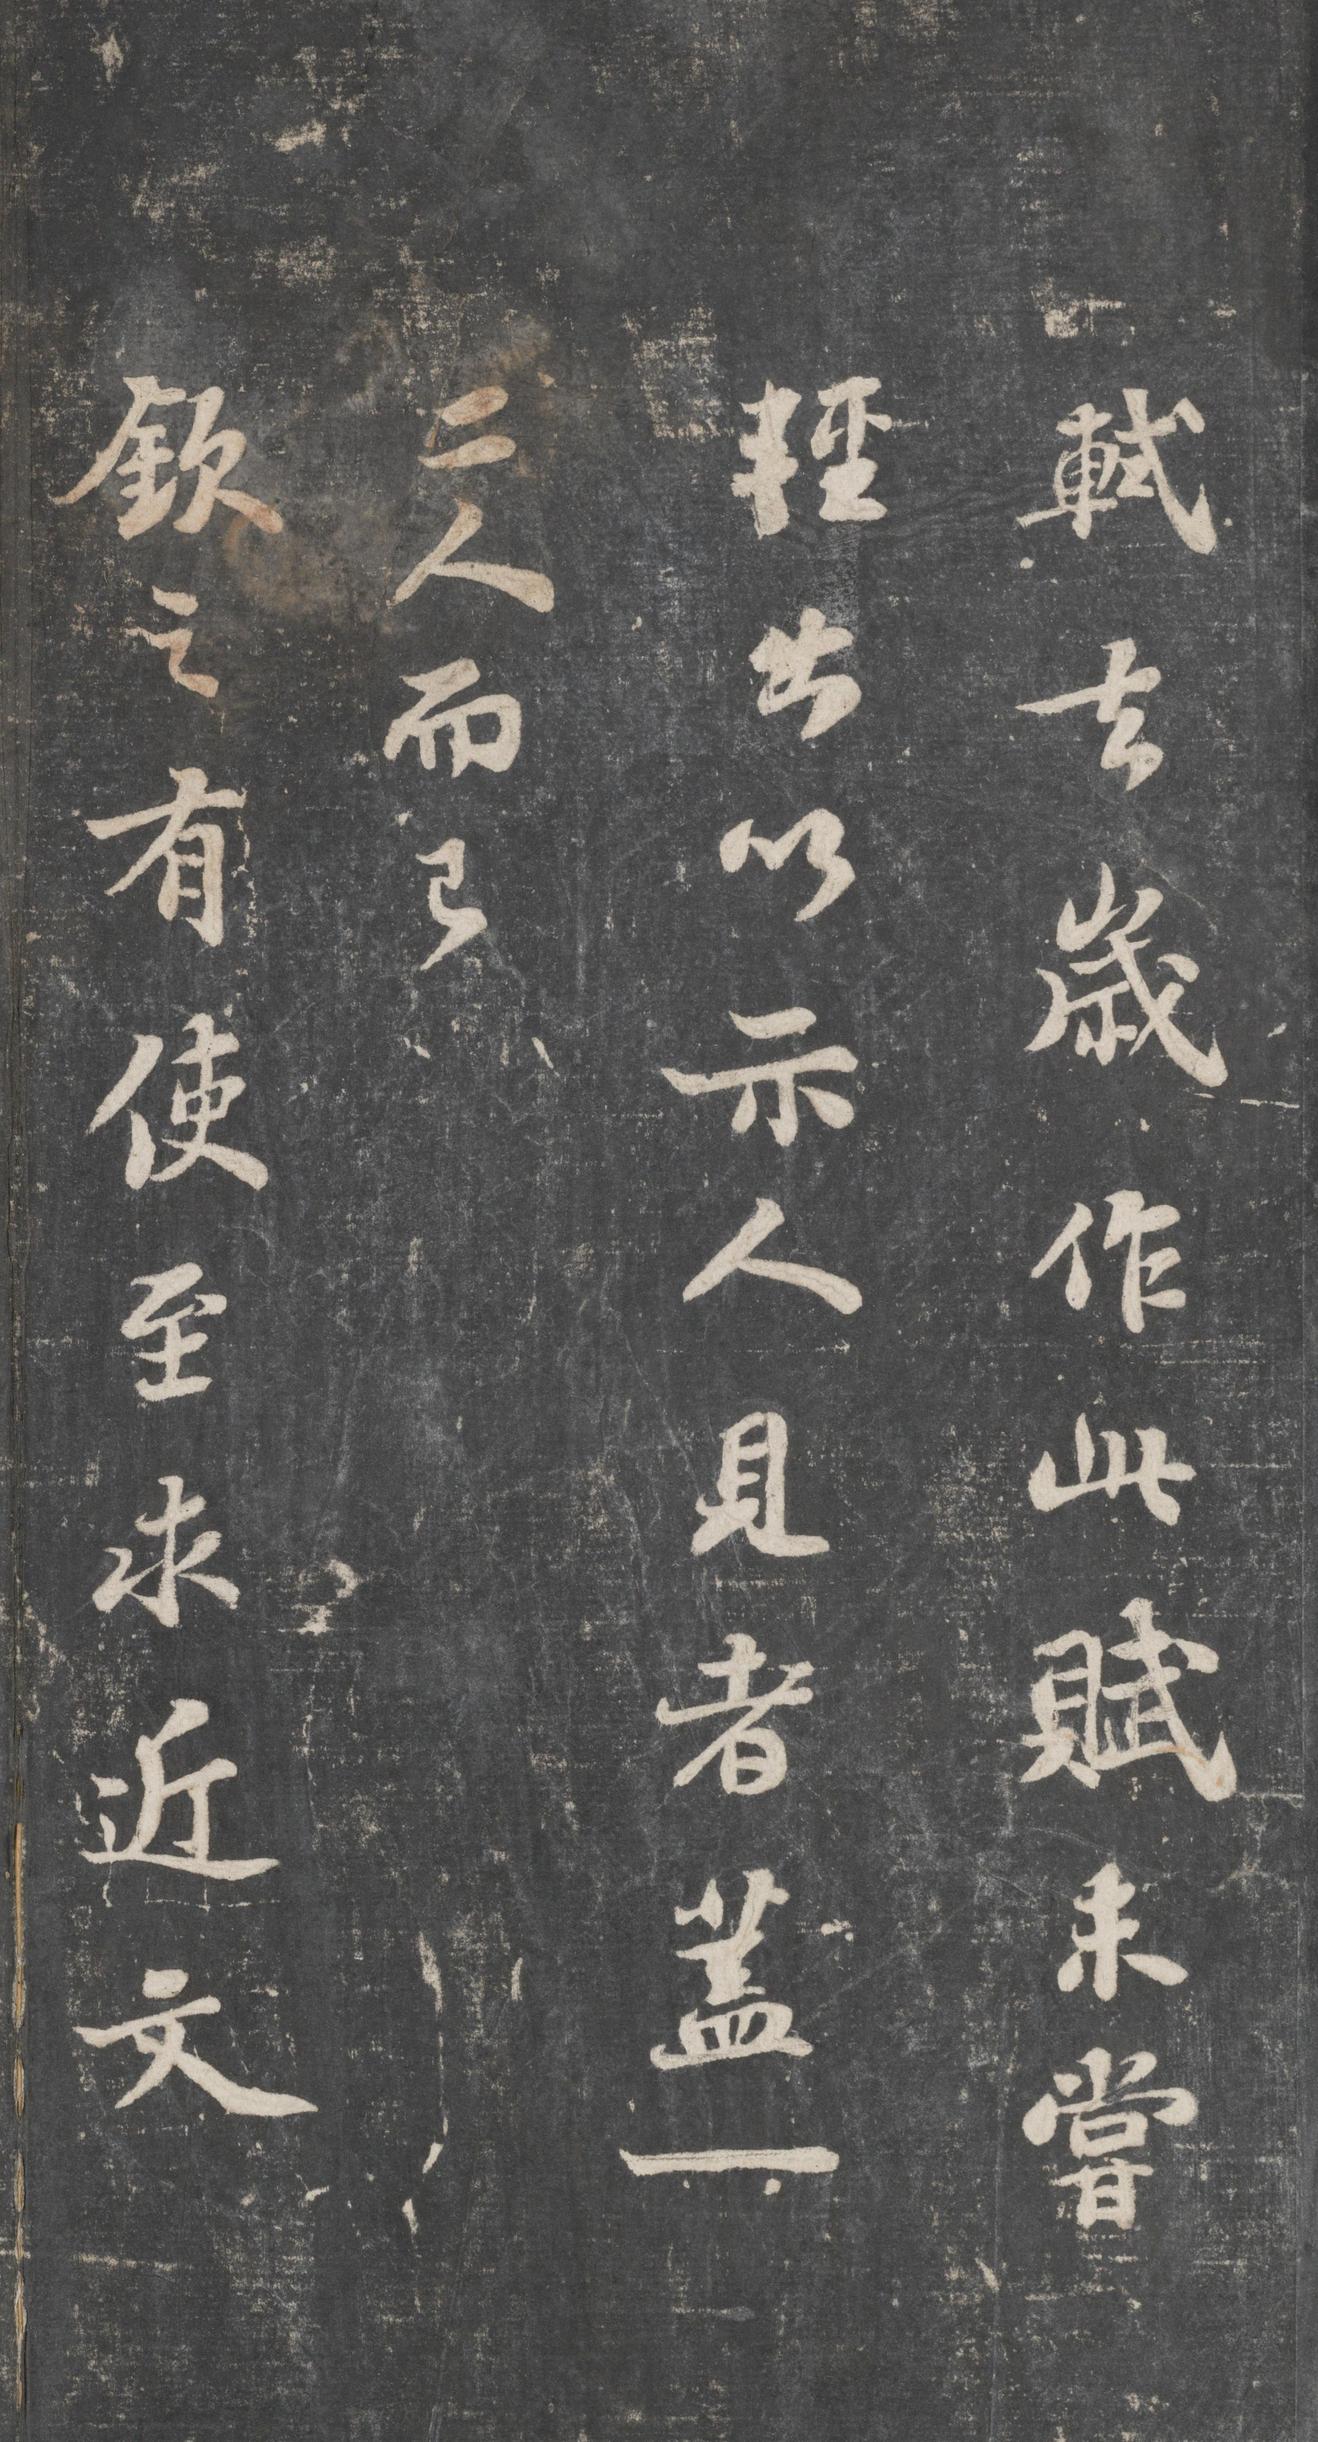 軾去歲作此賦未嘗
輕出以示人見者蓋一
二人而已
欽之有使至求近文